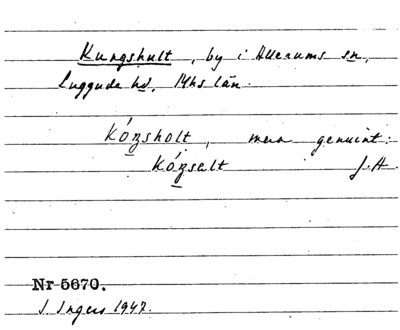 Kungshult, by i Allerums sn,
Luggude hd, Mhs län.
Kóŋsholt, mera genuint:
Kóŋsalt J.A
Nr 5670.
J. Ingers 1947.